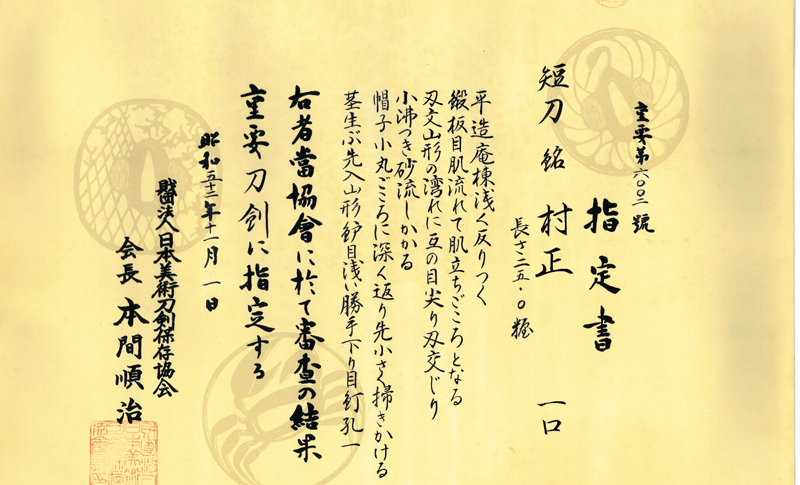 重要第六〇〇二號
指定書
短刀 銘 村正 一口
長さ二五・〇糎
平造庵棟浅く反りつく
鍛板目肌流れて肌立ちごころとなる
刃文山形の湾れに互の目尖り刃交じり
小沸つき砂流しかかる
帽子小丸ごころに深く返り先小さく掃きかける
茎生ぶ先入山形鑢目浅い勝手下り目釘孔一
右者當協會に於て審査の結果
重要刀剣に指定する
昭和五十二年十一月一日
財団法人日本美術刀剣保存協会
会長 本間順治